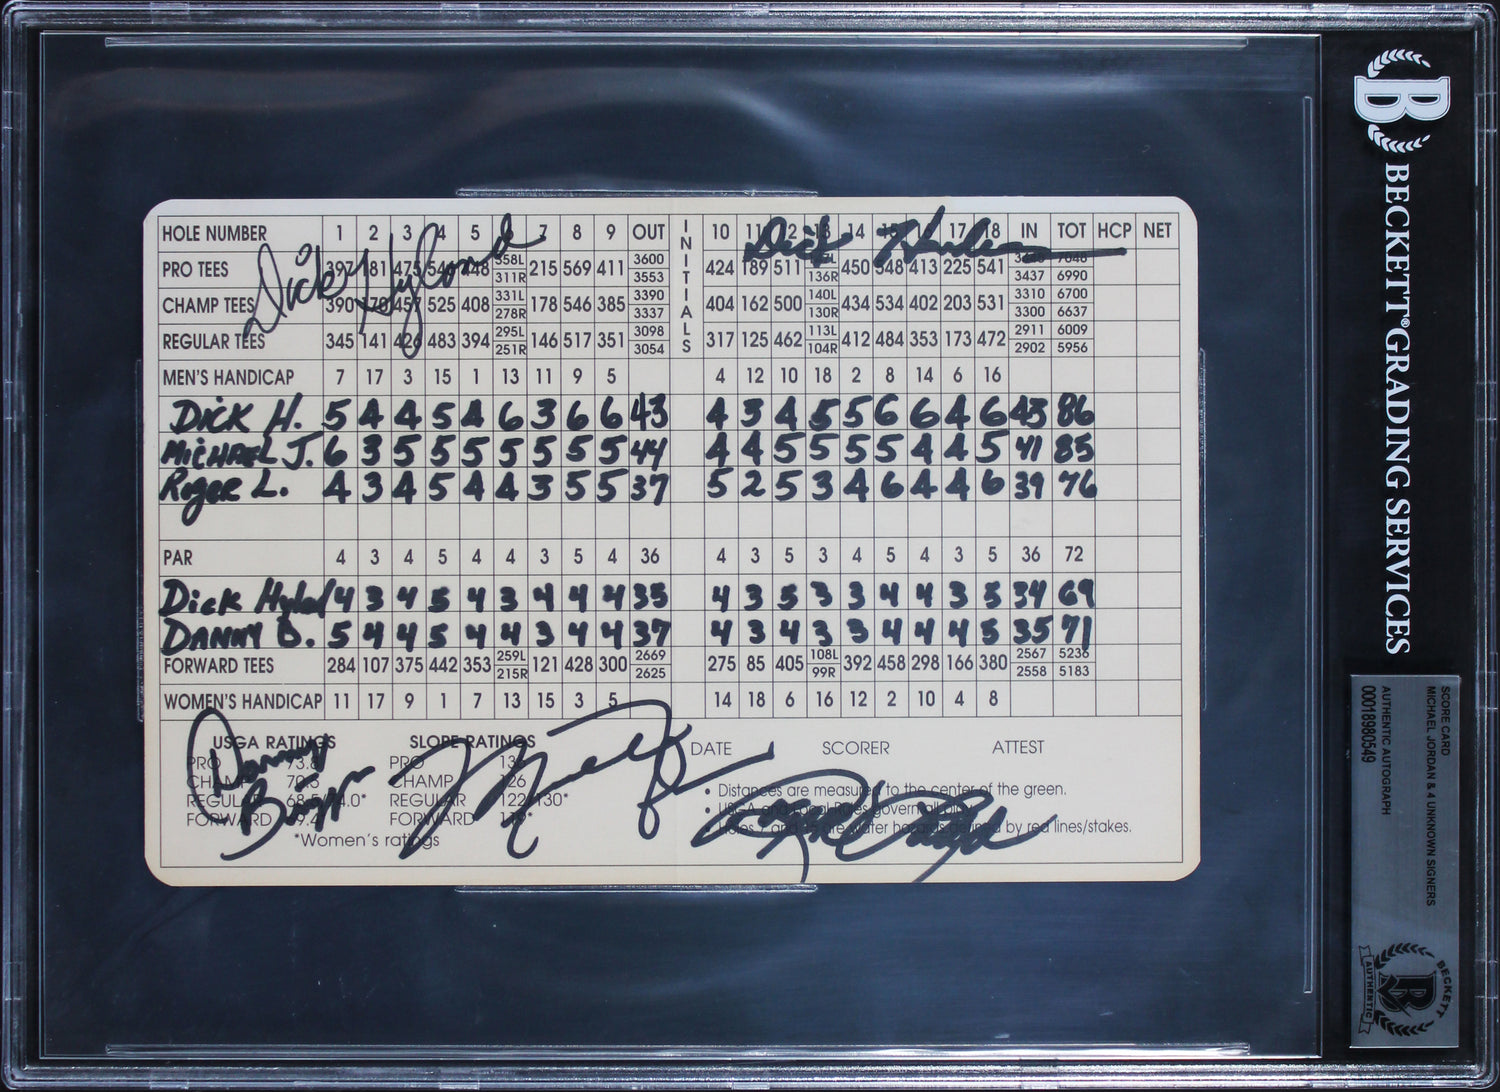 HOLE NUMBER 1 2 3 4 5 6 7 8 9 OUT INITIALS 10 11 12 13 14 15 16 17 18 IN TOT HCP NET
Dick Hyland
Dick
PRO TEES 397 181 475 448 358L 311R 215 569 411 3600 3553 424 189 511 136R 450 548 413 225 541 3437 7048 6990
CHAMP TEES 390 170 457 525 408 331L 278R 178 546 385 3390 3337 404 162 500 140L 130R 434 534 402 203 531 3310 3300 6700 6637
REGULAR TEES 345 141 426 483 394 295L 251R 146 517 351 3098 3054 317 125 462 113L 104R 412 484 353 173 472 2911 2902 6009 5956
MEN'S HANDICAP 7 17 3 15 1 13 11 9 5 4 12 10 18 2 8 14 6 16
DICK H. 5 4 4 5 4 6 3 6 6 43 4 3 4 5 5 6 6 4 6 43 86
MICHAEL J. 6 3 5 5 5 5 5 5 5 44 4 4 5 5 5 5 4 4 5 41 85
ROGER L. 4 3 4 5 4 4 3 5 5 37 5 2 5 3 4 6 4 4 6 39 76
PAR 4 3 4 5 4 4 3 5 4 36 4 3 5 3 4 5 4 3 5 36 72
Dick Hyland 4 3 4 5 4 3 4 4 4 35 4 3 5 3 3 4 4 3 5 34 69
DANNY B. 5 4 4 5 4 4 3 4 4 37 4 3 4 3 3 4 4 4 5 35 71
FORWARD TEES 284 107 375 442 353 259L 215R 121 428 300 2669 2625 275 85 405 108L 99R 392 458 298 166 380 2567 2558 5236 5183
WOMEN'S HANDICAP 11 17 9 1 7 13 15 3 5 14 18 6 16 12 2 10 4 8
Danny Briggs
USGA RATINGS SLOPE RATINGS DATE SCORER ATTEST
PRO 73.8 PRO
CHAMP 70.5 CHAMP 126
REGULAR REGULAR 122/130*
FORWARD FORWARD
*Women's ratings
• Distances are measured to the center of the green.
• USGA and Local Rules govern all play.
• Holes 7 and 15 are water hazards defined by red lines/stakes.
BECKETT® GRADING SERVICES
SCORE CARD
MICHAEL JORDAN & 4 UNKNOWN SIGNERS
AUTHENTIC AUTOGRAPH
00018980549
BECKETT
AUTHENTIC